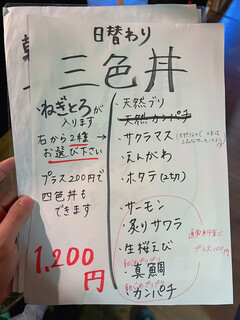 日替わり
三色丼
・ねぎとろが
入ります
右から2種
お選び下さい
プラス200円で
四色丼も
できます
1,200
円
・天然ブリ
・天然カンパチ
・サクラマス
・えんがわ
・ホタテ(2切)
・サーモン
・炙りサワラ
・生桜えび
・真鯛
・カンパチ
プラス100円